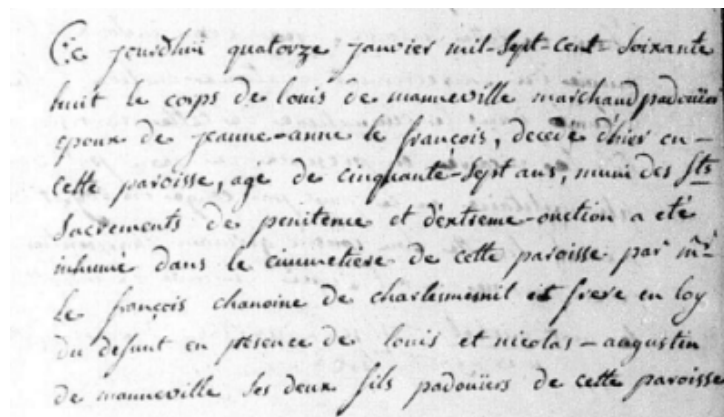 Ce jourdhui quatorze janvier mil-sept-cent-soixante
huit le corps de louis de manneville marchand padoüier
epoux de jeanne-anne le françois, decedé d'hier en
cette paroisse, agé de cinquante-sept ans, muni des sts
sacrements de penitence et d'extreme-onction a eté
inhumé dans le cimmetiere de cette paroisse par mr
le françois chanoine de charlesmesnil et frere en loy
du defunt en présence de louis et nicolas-augustin
de manneville ses deux fils padoüiers de cette paroisse